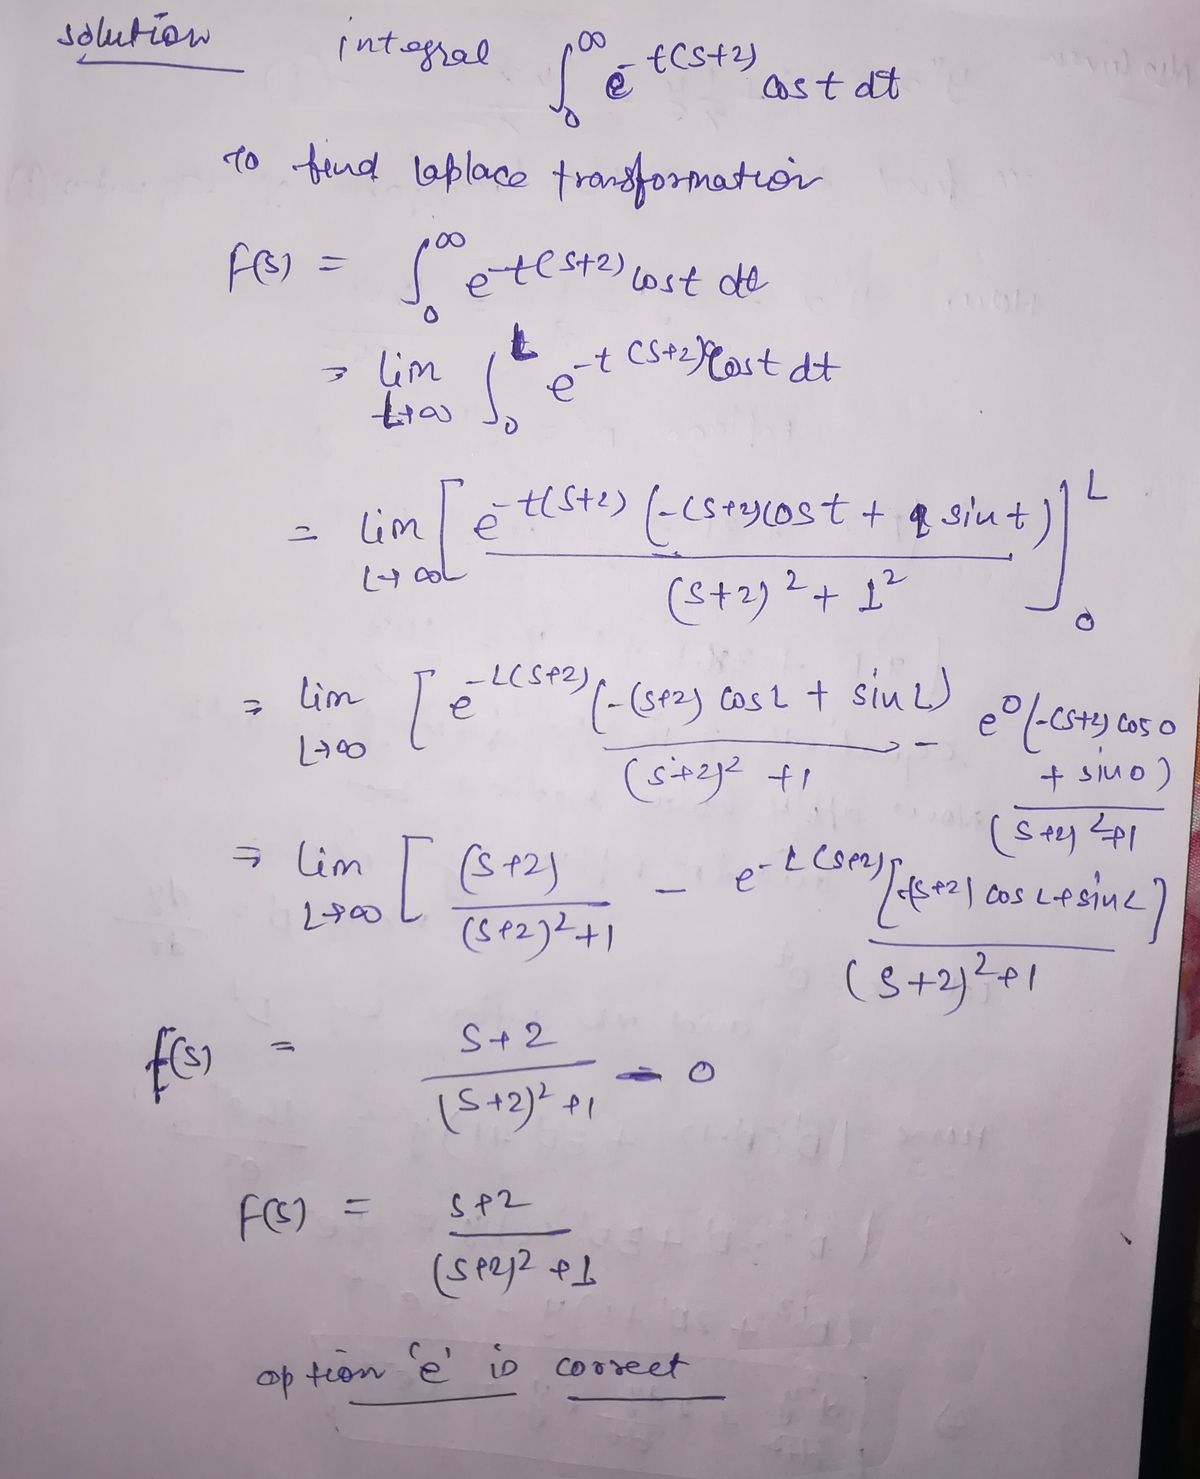 solution integral ∫₀^∞ e^-t(s+2) cost dt
To find laplace transformation
F(s) = ∫₀^∞ e^-t(s+2) cost dt
= lim L→∞ ∫₀^L e^-t(s+2) cost dt
= lim L→∞ [ e^-t(s+2) (-(s+2)cost + sint) / (s+2)² + 1² ]₀^L
= lim L→∞ [ e^-L(s+2) (-(s+2) cosL + sinL) / (s+2)² + 1 - e⁰(-(s+2) cos0 + sin0) / (s+2)²+1
= lim L→∞ [ (s+2) / (s+2)²+1 - e^-L(s+2) [-(s+2) cosL + sinL] / (s+2)²+1
f(s) = s+2 / (s+2)²+1 - 0
F(s) = s+2 / (s+2)² + 1
option 'e' is correct